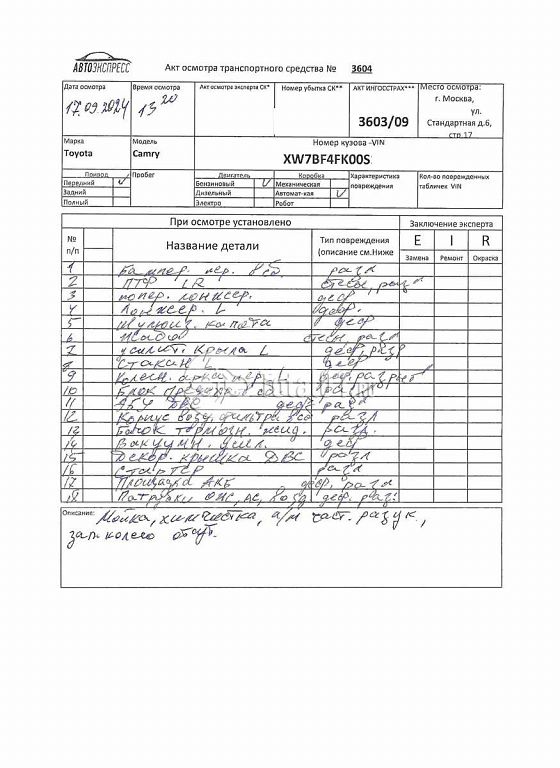 АВТОЭКСПРЕСС
Акт осмотра транспортного средства № 3604
Дата осмотра Время осмотра Акт осмотра эксперта СК* Номер убытка СК** АКТ ИНГОССТРАХ*** Место осмотра:
17.09.2024 13 20 3603/09 г. Москва,
ул.
Стандартная д.6,
стр.17
Марка Модель Номер кузова -VIN
Toyota Camry XW7BF4FK00S
Привод Пробег Двигатель Коробка Характеристика Кол-во поврежденных
Передний Бензинновый Механическая повреждения табличек VIN
Задний Дизельный Автомат-кая
Полный Электро Робот
При осмотре установлено Заключение эксперта
№ Название детали Тип повреждения E I R
п/п (описание см.Ниже Замена Ремонт Окраска
1 Бампер. пер. разл
2 ПТФ LR разл
3 попер. лонжер. деф
4 Лонжер. L деф.
5 капота деф
6 разл
7 усилит. Крыла L деф, разр
8 Стакан L деф
9 Колесн. арка пер. L деф,
10 Блок предохр. разл
11 ДВС деф разл
12 Корпус возд. фильтра разл
13 Бачок тормозн. жид. разл.
14 Вакуумн. усил. деф
15 Декор. крышка ДВС разл
16 Стартер разл
17 Площадка АКБ деф, разл
18 Патрубки деф, раз.
Описание: Мойка, химчистка, а/м част. разук.,
зап. колесо отсут.